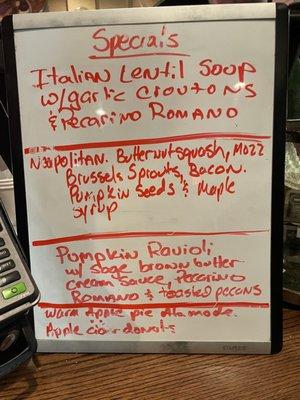 Specials
Italian Lentil Soup
w/garlic croutons
& Pecarino Romano
Butternut squash, Mozz
Brussels Sprouts, Bacon.
Pumpkin Seeds & Maple
Syrup
Pumpkin Ravioli
w/ sage brown butter
cream sauce, Pecarino
Romano & toasted pecans
warm Apple pie Ala mode.
Apple donuts